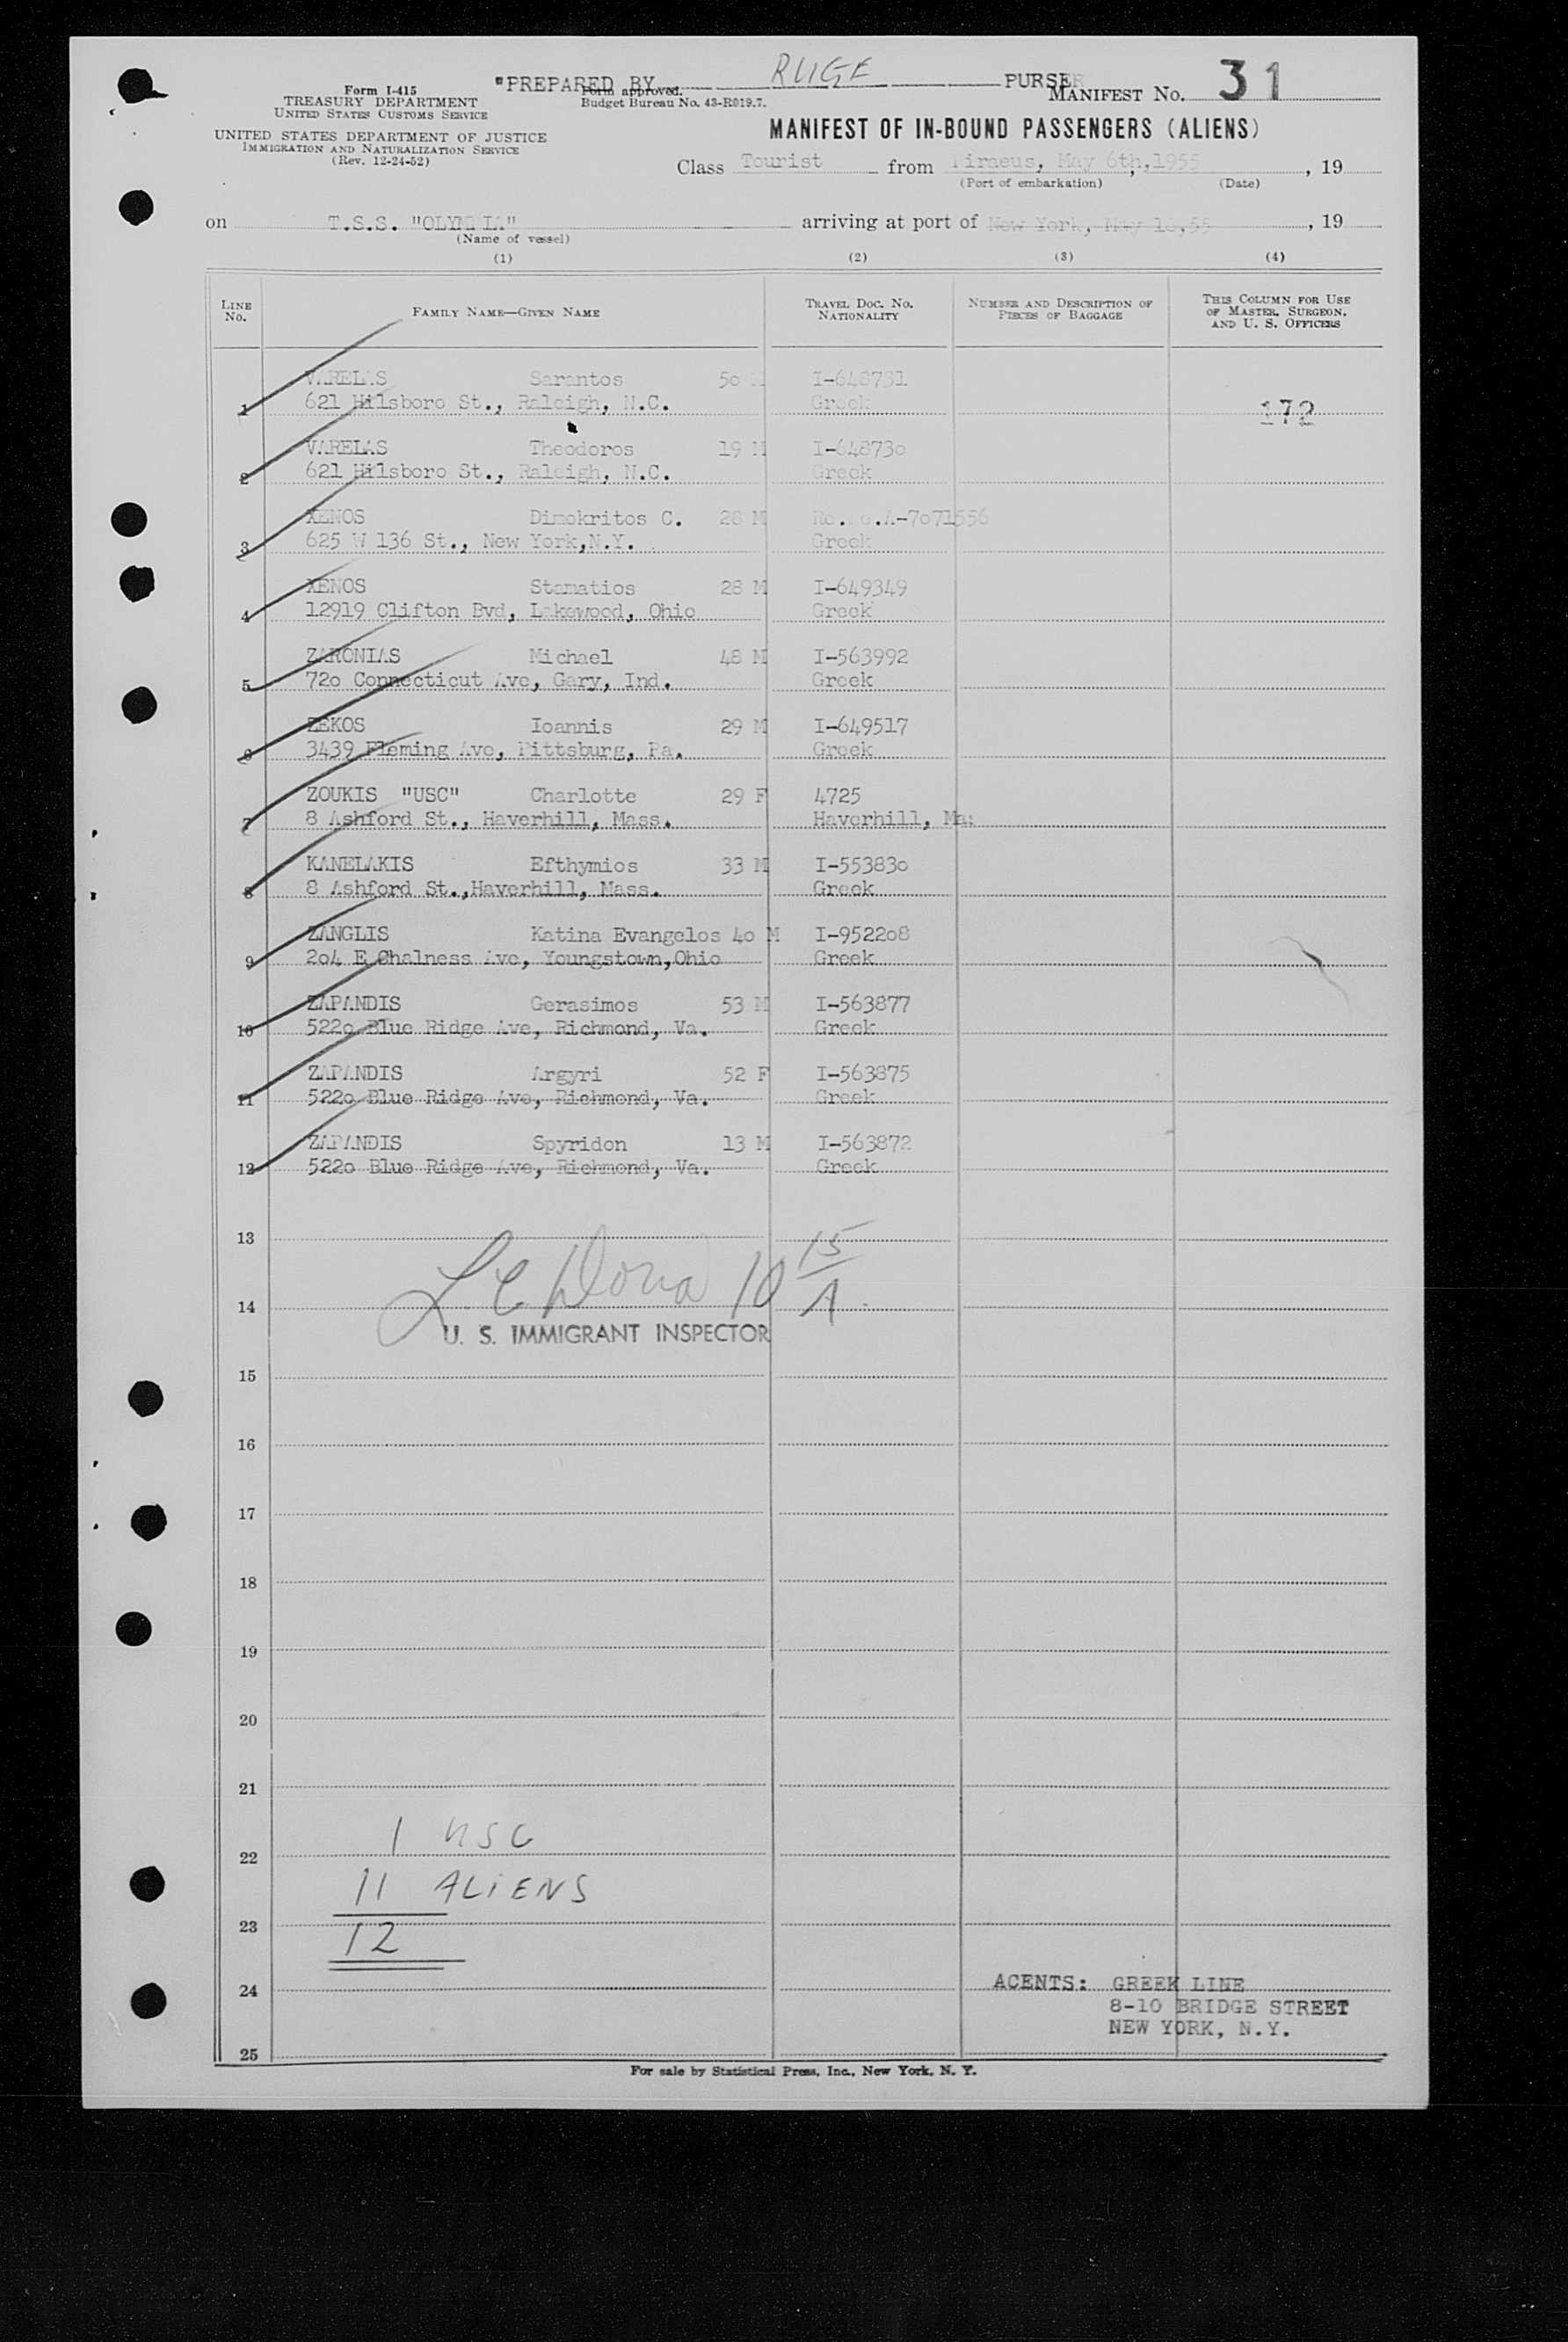 Form I-415
TREASURY DEPARTMENT
UNITED STATES CUSTOMS SERVICE
UNITED STATES DEPARTMENT OF JUSTICE
IMMIGRATION AND NATURALIZATION SERVICE
(Rev. 12-24-52)
"PREPARED BY RUGE PURSER
Form approved.
Budget Bureau No. 43-R019.7.
MANIFEST No. 31
MANIFEST OF IN-BOUND PASSENGERS (ALIENS)
Class Tourist from Piraeus, May 6th,1955, 19
(Port of embarkation) (Date)
on T.S.S. "OLYMPIA" arriving at port of New York, May 16,55, 19
(Name of vessel)
(1) (2) (3) (4)
LINE No. FAMILY NAME—GIVEN NAME TRAVEL DOC. NO. NATIONALITY NUMBER AND DESCRIPTION OF PIECES OF BAGGAGE THIS COLUMN FOR USE OF MASTER, SURGEON, AND U. S. OFFICERS
VARELAS Sarantos 50 M I-648731
1 621 Hilsboro St., Raleigh, N.C. Greek 172
VARELAS Theodoros 19 M I-648730
2 621 Hilsboro St., Raleigh, N.C. Greek
XENOS Dimokritos C. 28 M A-7071556
3 625 W 136 St., New York,N.Y. Greek
XENOS Stamatios 28 M I-649349
4 12919 Clifton Bvd, Lakewood, Ohio Greek
ZARONIAS Michael 48 M I-563992
5 720 Connecticut Ave, Gary, Ind. Greek
ZEKOS Ioannis 29 M I-649517
6 3439 Fleming Ave, Pittsburg, Pa. Greek
ZOUKIS "USC" Charlotte 29 F 4725
7 8 Ashford St., Haverhill, Mass. Haverhill, Ma:
KANELAKIS Efthymios 33 M I-553830
8 8 Ashford St.,Haverhill, Mass. Greek
ZANGLIS Katina Evangelos 40 M I-952208
9 204 E Chalness Ave, Youngstown,Ohio Greek
ZAPANDIS Gerasimos 53 M I-563877
10 5220 Blue Ridge Ave, Richmond, Va. Greek
ZAPANDIS Argyri 52 F I-563875
11 5220 Blue Ridge Ave, Richmond, Va. Greek
ZAPANDIS Spyridon 13 M I-563872
12 5220 Blue Ridge Ave, Richmond, Va. Greek
13
10 15/A
14
U. S. IMMIGRANT INSPECTOR
15
16
17
18
19
20
21
1 USC
22
11 ALIENS
23
12
24
AGENTS: GREEK LINE
8-10 BRIDGE STREET
NEW YORK, N.Y.
25
For sale by Statistical Press, Inc., New York, N. Y.